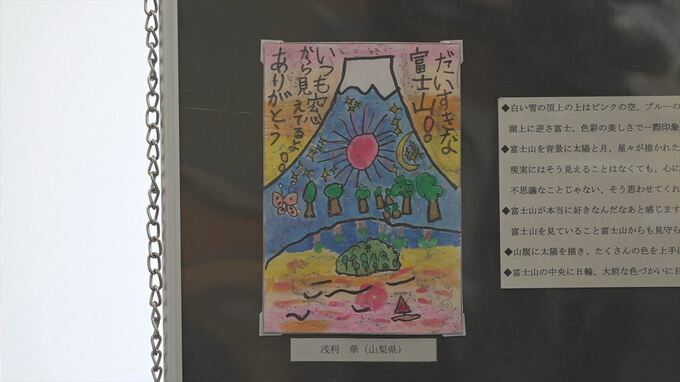 だいすきだよ
富士山
いつも窓
から見
えてるよ
ありがとう
浅利 華（山梨県）
◆白い雪の頂上の上はピンクの空、ブルーの
湖上に逆さ富士、色彩の美しさで一際印象
◆富士山を背景に太陽と月、星々が描かれた
現実にはそう見えることはなくても、心に
不思議なことじゃない、そう思わせてくれ
◆富士山が本当に好きなんだなあと感じます
富士山を見ていること富士山からも見守ら
◆山腹に太陽を描き、たくさんの色を上手に
◆富士山の中央に日輪、大胆な色づかいに目